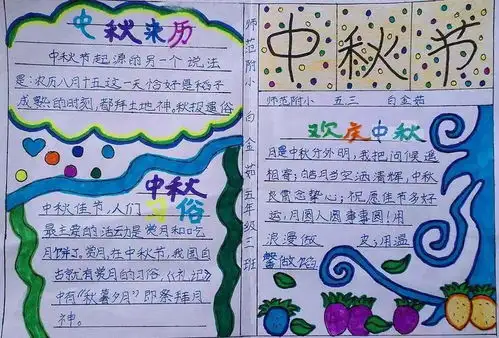 中秋来历
中秋节起源的另一个说法
是:农历八月十五这一天恰好是稻子
成熟的时刻,都拜土地神。秋报遗俗
中秋
习俗
中秋佳节,人们
最主要的活动是赏月和吃
月饼了。赏月,在中秋节,我国自
古就有赏月的习俗,《礼记》
中有“秋暮夕月”即祭拜月
神。
师范附小 白金茹 五年级三班
中秋节
师范附小 五三 白金茹
欢庆中秋
月是中秋分外明,我把问候遥
相寄;皓月当空洒清辉,中秋
良宵念挚心;祝愿佳节多好
运,月圆人圆事事圆!用
浪漫做 皮;用温
馨做馅